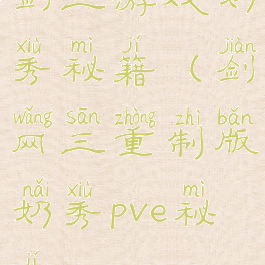 xiù mì jí jiàn
秀秘籍(剑
wǎng sān zhòng zhì bǎn
网三重制版
nǎi xiù mì
奶秀pve秘
jí